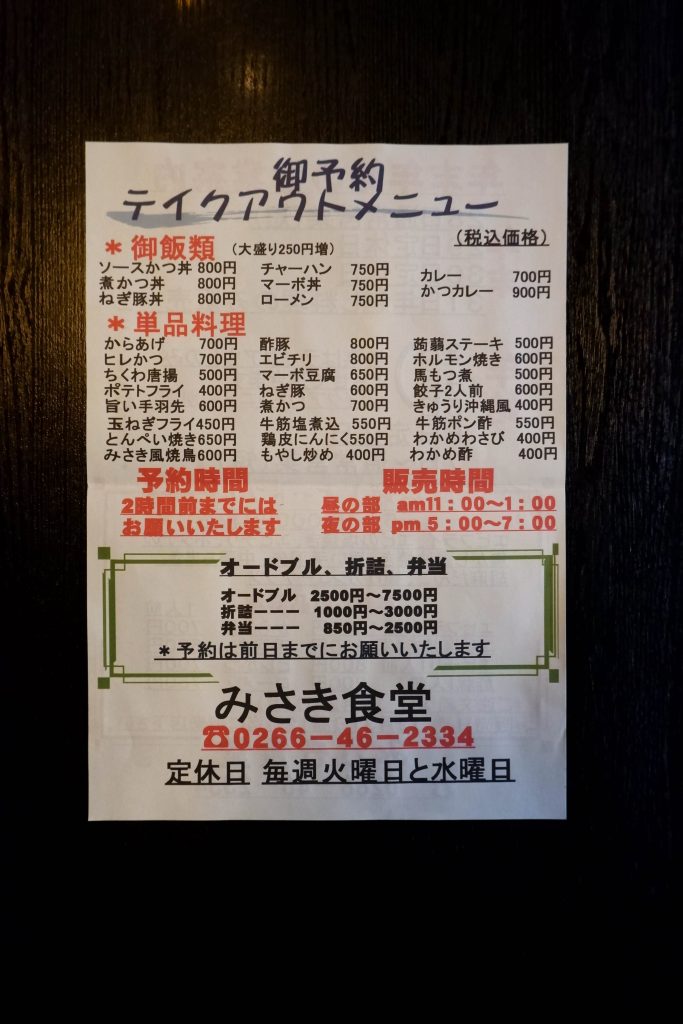 御予約
テイクアウトメニュー
(税込価格)
＊御飯類 (大盛り250円増)
ソースかつ丼 800円 チャーハン 750円 カレー 700円
煮かつ丼 800円 マーボ丼 750円 かつカレー 900円
ねぎ豚丼 800円 ローメン 750円
＊単品料理
からあげ 700円 酢豚 800円 蒟蒻ステーキ 500円
ヒレかつ 700円 エビチリ 800円 ホルモン焼き 600円
ちくわ唐揚 500円 マーボ豆腐 650円 馬もつ煮 500円
ポテトフライ 400円 ねぎ豚 600円 餃子2人前 600円
旨い手羽先 600円 煮かつ 700円 きゅうり沖縄風 400円
玉ねぎフライ 450円 牛筋塩煮込 550円 牛筋ポン酢 550円
とんぺい焼き 650円 鶏皮にんにく 550円 わかめわさび 400円
みさき風焼鳥 600円 もやし炒め 400円 わかめ酢 400円
予約時間 販売時間
2時間前までには 昼の部 am11：00～1：00
お願いいたします 夜の部 pm 5：00～7：00
オードブル、折詰、弁当
オードブル 2500円～7500円
折詰ーーー 1000円～3000円
弁当ーーー 850円～2500円
＊予約は前日までにお願いいたします
みさき食堂
☎0266－46－2334
定休日 毎週火曜日と水曜日